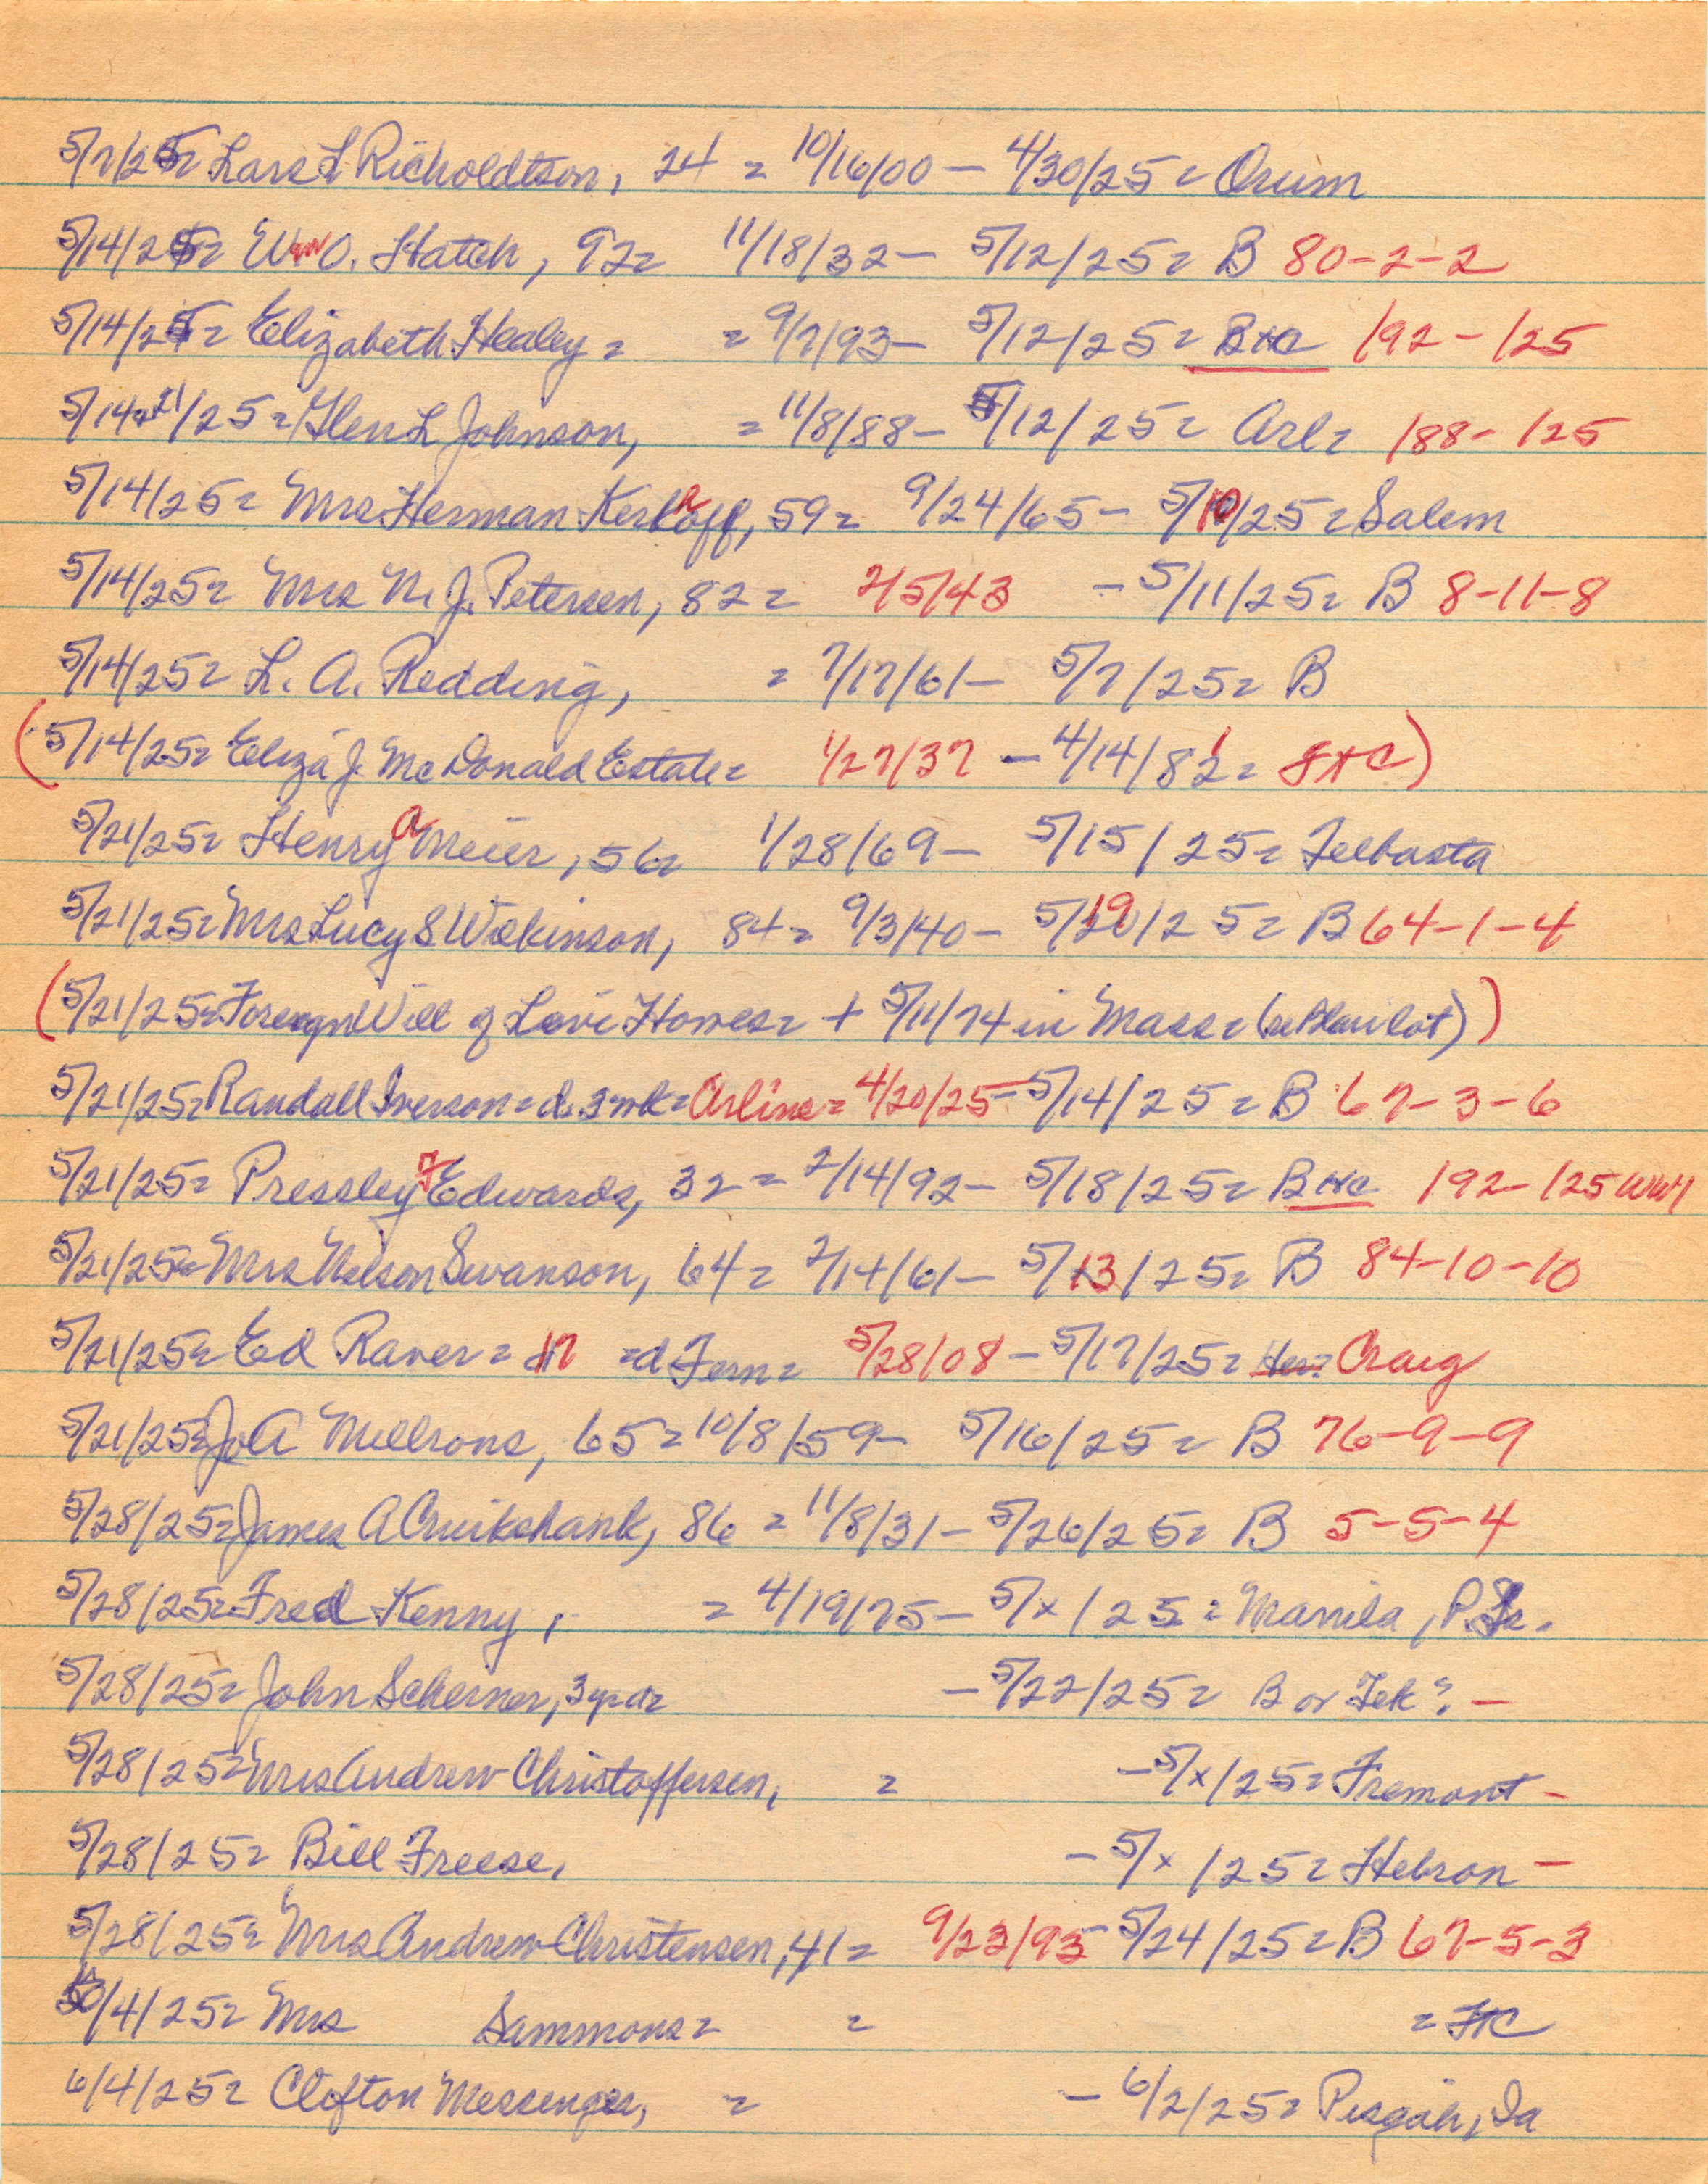 5/7/25= Lars L Richoldtson, 24 = 10/16/00 - 4/30/25 = Orum
5/14/25= Wm O. Hatch, 92= 11/18/32- 5/12/25= B 80-2-2
5/14/25= Elizabeth Healey = = 9/7/93- 5/12/25= B+C 192-125
5/14+21/25= Glen L Johnson, = 11/8/88- 5/12/25= Arl= 188-125
5/14/25= Mrs Herman Kerkhoff, 59= 9/24/65- 5/10/25= Salem
5/14/25= Mrs N. J. Petersen, 82= 2/5/43 - 5/11/25= B 8-11-8
5/14/25= L. A. Redding, = 7/17/61- 5/7/25= B
(5/14/25= Eliza J. McDonald Estate= 1/27/37 - 4/14/81= )
5/21/25= Henry A Meier, 56= 1/28/69- 5/15/25= Telbasta
5/21/25= Mrs Lucy S Wilkinson, 84= 9/3/40- 5/19/25= B 64-1-4
(5/21/25= Foreign Will of Levi Howes= + 5/11/74 in Mass= (se Blair lot))
5/21/25= Randall Iverson= d. 3wk= Arline= 4/20/25- 5/14/25= B 67-3-6
5/21/25= Pressley F Edwards, 32= 2/14/92- 5/18/25= B+C 192-125 WW1
5/21/25= Mrs Nelson Swanson, 64= 2/14/61- 5/13/25= B 84-10-10
5/21/25= Ed Raver= 17 =d Fern= 5/28/08- 5/17/25= Her? Craig
5/21/25= Jo A Millrons, 65= 10/8/59- 5/16/25= B 76-9-9
5/28/25= James A Cruikshank, 86 = 11/8/31- 5/26/25= B 5-5-4
5/28/25= Fred Kenny, = 4/19/75- 5/x/25= Manila,
5/28/25= John Scherner, 3yr d= - 5/22/25= B or Tek? -
5/28/25= Mrs Andrew Christoffersen, = - 5/x/25= Fremont -
5/28/25= Bill Freese, - 5/x/25= Hebron -
5/28/25= Mrs Andrew Christensen, 41= 9/23/93- 5/24/25= B 67-5-3
6/4/25= Mrs Sammons= = = FtC
6/4/25= Clifton Messenger, = - 6/2/25= Pisgah, Ia